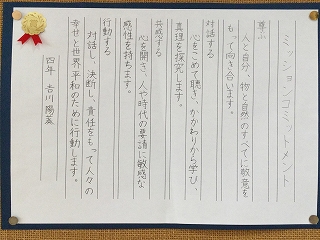 ミッションコミットメント
尊ぶ
人と自分、物と自然のすべてに敬意を
もって向き合います。
対話する
心をこめて聴き、かかわりから学び、
真理を探究します。
共感する
心を開き、人や時代の要請に敏感な
感性を持ちます。
行動する
対話し、決断し、責任をもって人々の
幸せと世界平和のために行動します。
四年 吉川陽菜